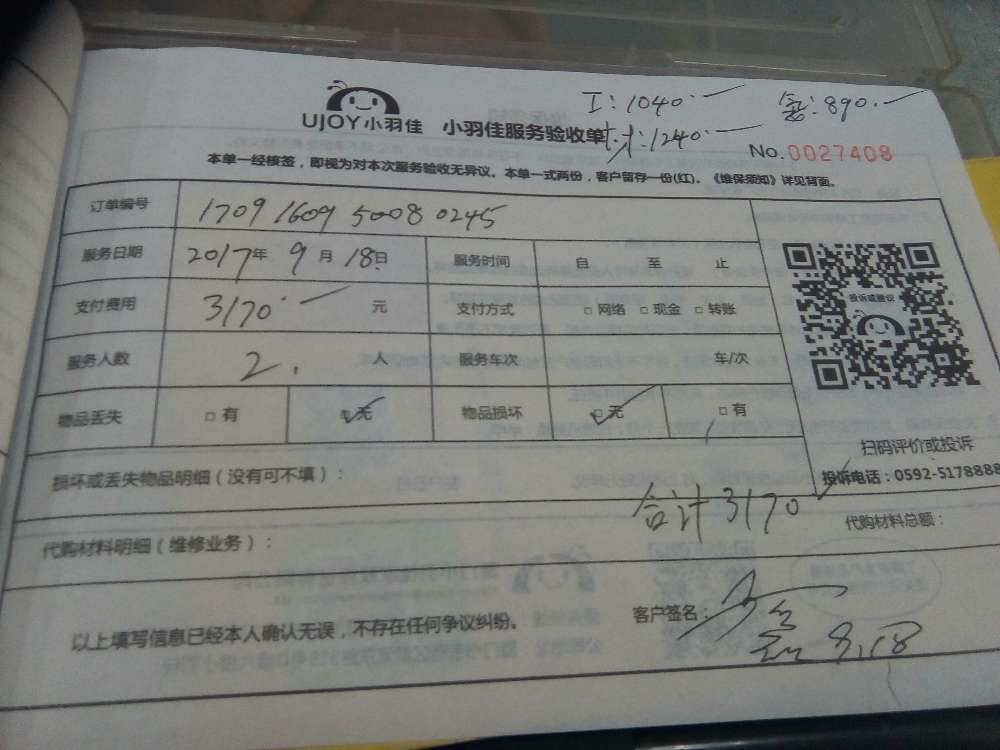 工:1040. 金:890.
UJOY小羽佳 小羽佳服务验收单 材:1240.
No.0027408
本单一经核签,即视为对本次服务验收无异议。本单一式两份,客户留存一份(红)。《维保须知》详见背面。
订单编号 1709 1609 5008 0245
服务日期 2017年 9月 18日 服务时间 自 至 止
支付费用 3170. 元 支付方式 □网络 □现金 □转账
服务人数 2. 人 服务车次 车/次
物品丢失 □有 □无 物品损坏 □无 □有
投诉或建议
扫码评价或投诉
投诉电话:0592-5178888
损坏或丢失物品明细(没有可不填):
合计3170
代购材料明细(维修业务): 代购材料总额:
以上填写信息已经本人确认无误,不存在任何争议纠纷。 客户签名:
9.18